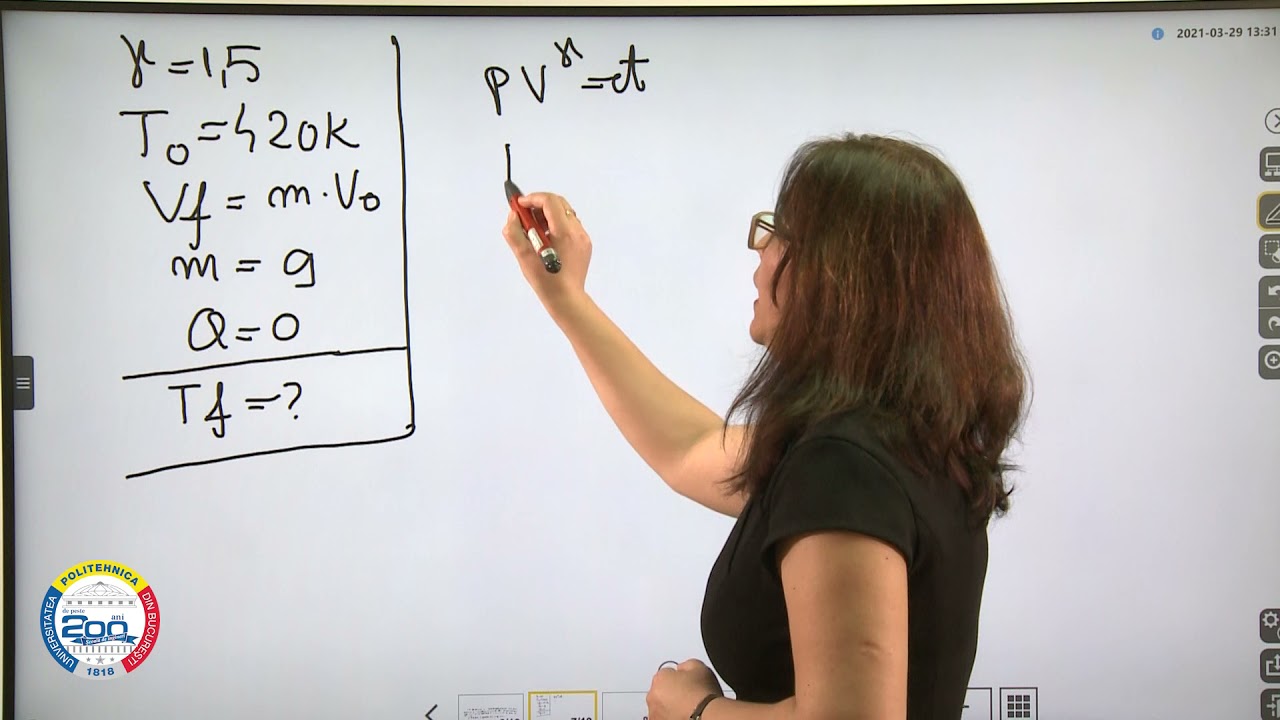 γ=1,5
T₀=420K
Vf = m·V₀
m = 9
Q=0
Tf=?
PV^γ=ct
2021-03-29 13:31
UNIVERSITATEA POLITEHNICA DIN BUCUREȘTI
de peste
200 ani
1818